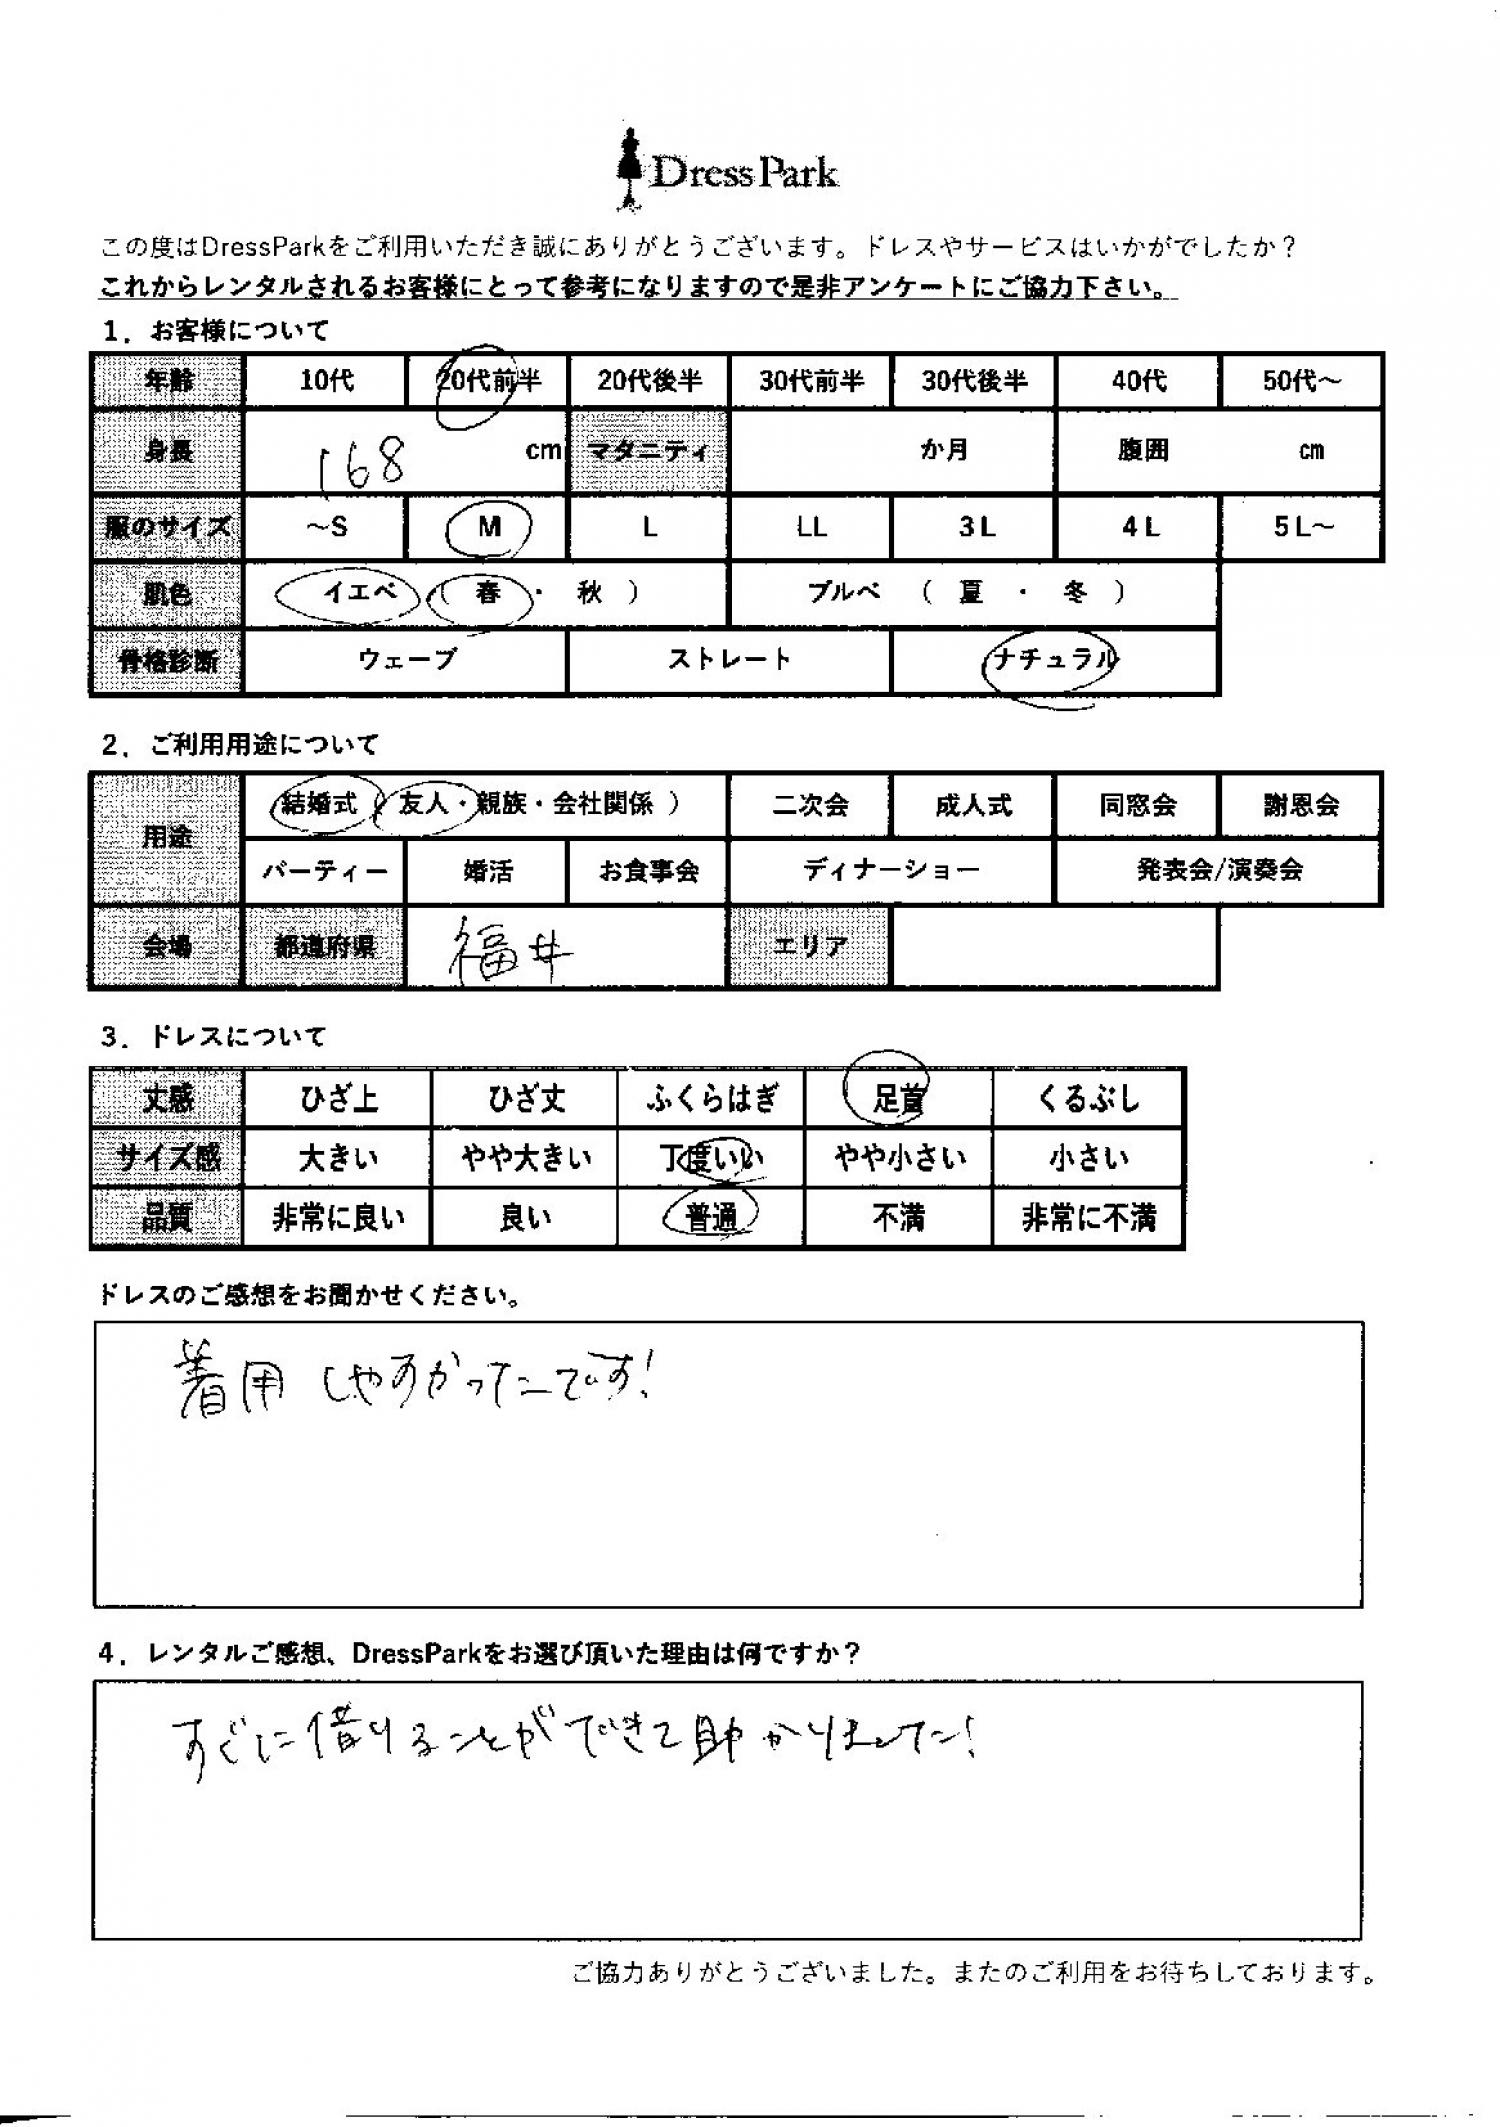 DressPark
この度はDressParkをご利用いただき誠にありがとうございます。ドレスやサービスはいかがでしたか？
これからレンタルされるお客様にとって参考になりますので是非アンケートにご協力下さい。
1．お客様について
年齢 10代 20代前半 20代後半 30代前半 30代後半 40代 50代～
身長 168 cm マタニティ か月 腹囲 cm
服のサイズ ～S M L LL 3L 4L 5L～
肌色 イエベ （ 春 ・ 秋 ） ブルベ （ 夏 ・ 冬 ）
骨格診断 ウェーブ ストレート ナチュラル
2．ご利用用途について
用途 結婚式（ 友人・親族・会社関係 ） 二次会 成人式 同窓会 謝恩会
パーティー 婚活 お食事会 ディナーショー 発表会/演奏会
会場 都道府県 福井 エリア
3．ドレスについて
丈感 ひざ上 ひざ丈 ふくらはぎ 足首 くるぶし
サイズ感 大きい やや大きい 丁度いい やや小さい 小さい
品質 非常に良い 良い 普通 不満 非常に不満
ドレスのご感想をお聞かせください。
着用しやすかったです！
4．レンタルご感想、DressParkをお選び頂いた理由は何ですか？
すぐに借りることができて助かりました！
ご協力ありがとうございました。またのご利用をお待ちしております。